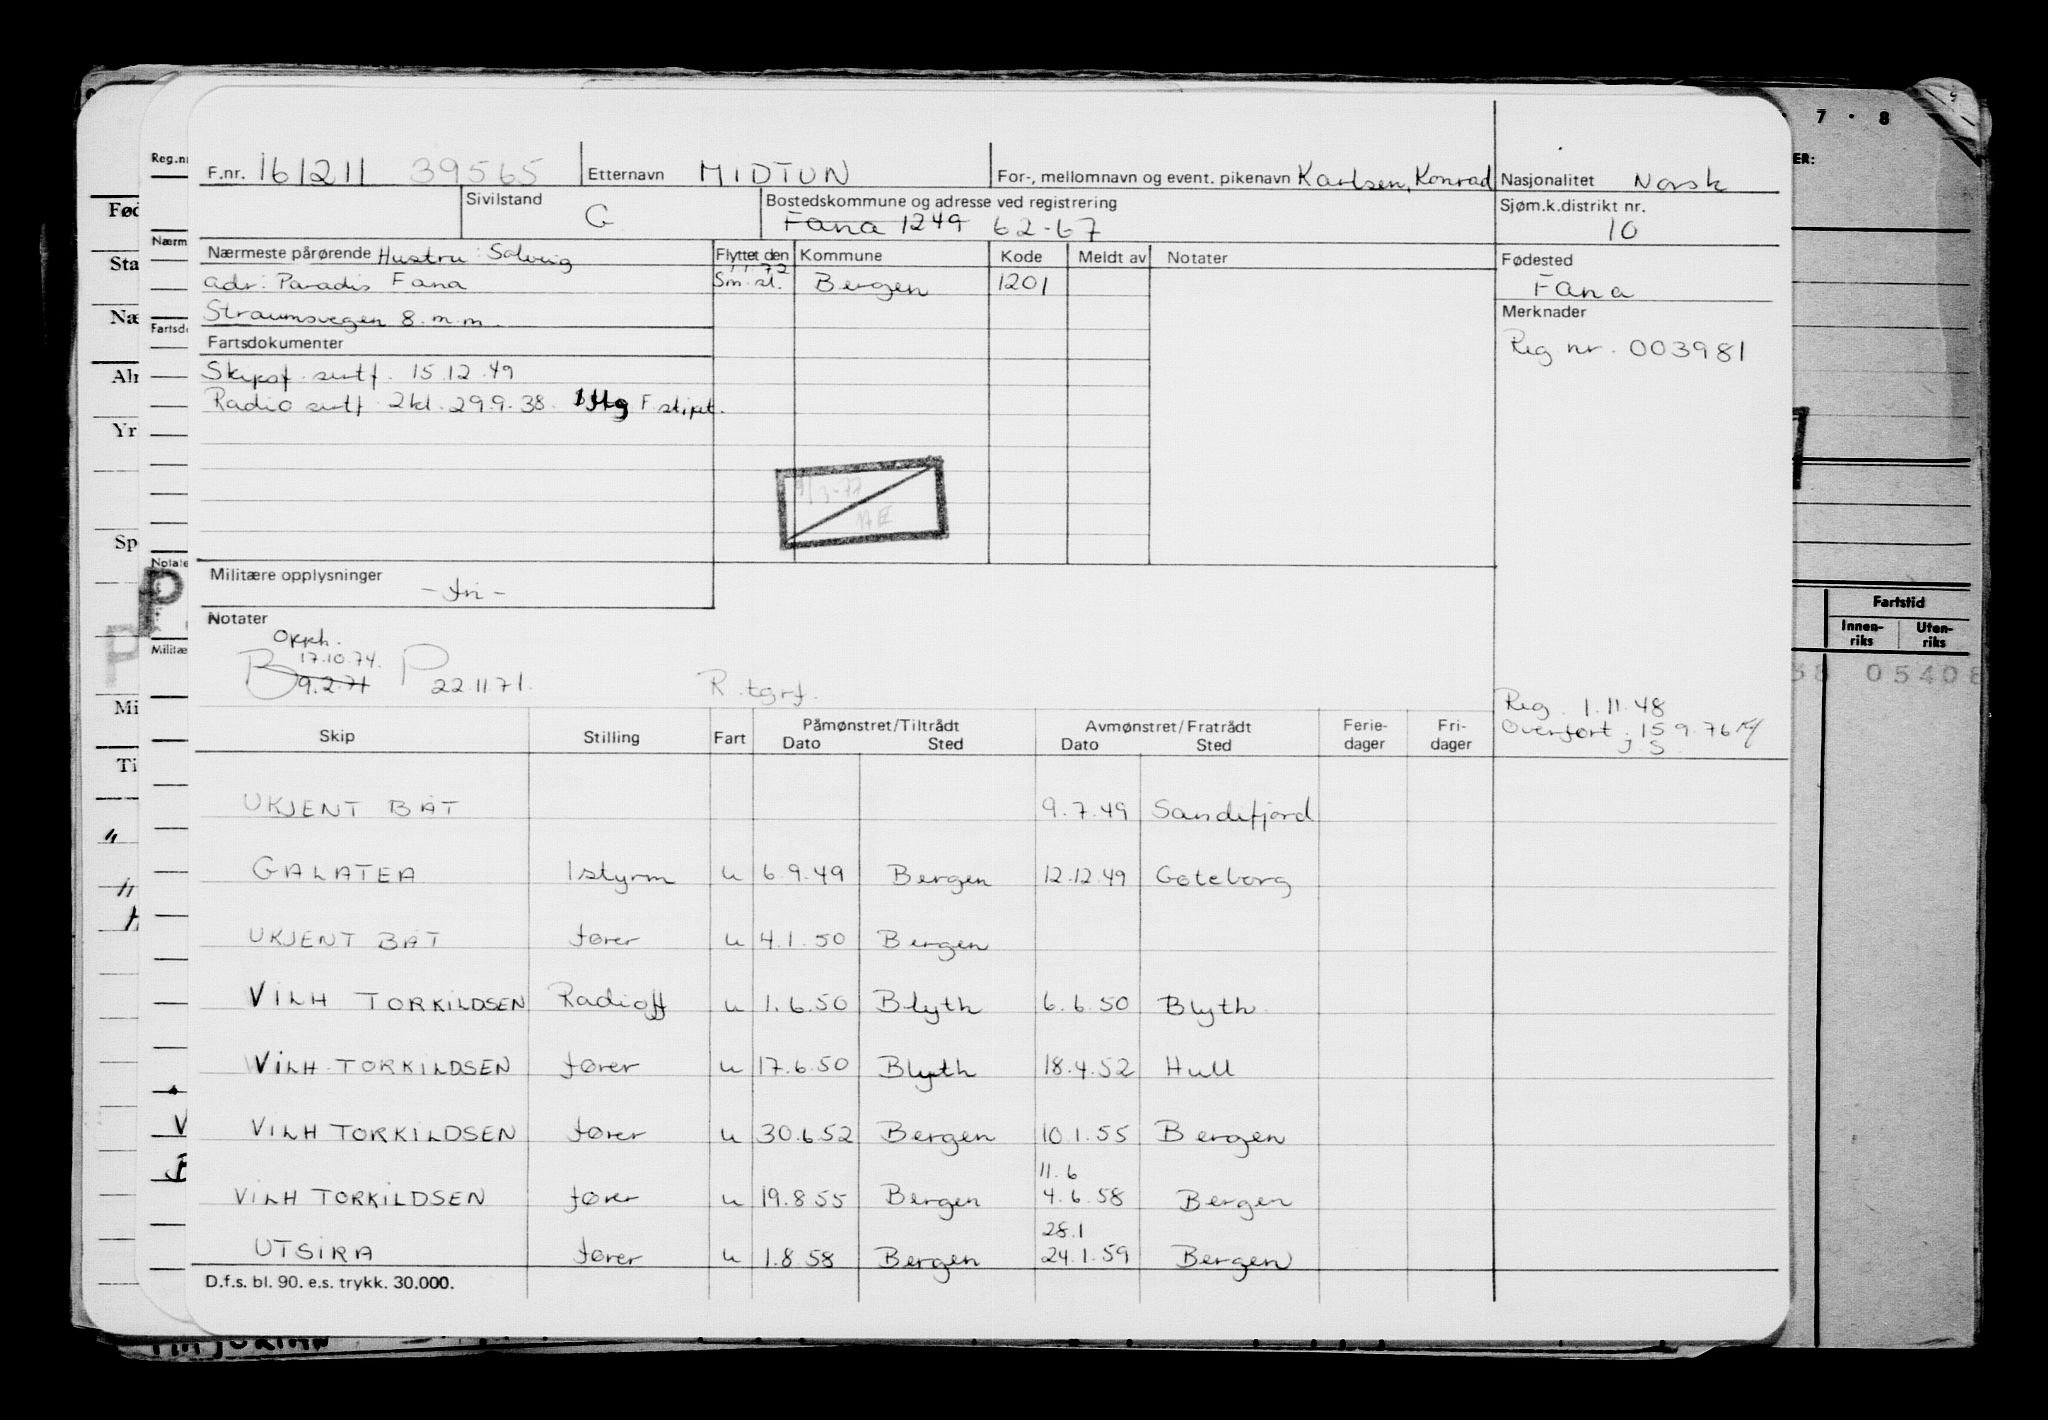 F.nr. 161211 39565 Etternavn MIDTUN For-, mellomnavn og event. pikenavn Karlsen, Konrad Nasjonalitet Norsk
Sivilstand G Bostedskommune og adresse ved registrering Sjøm.k.distrikt nr.
Fana 1249 62-67 10
Nærmeste pårørende Hustru: Solveig Flyttet den Kommune Kode Meldt av Notater Fødested
1.1.72
adr: Paradis Fana Sm.st. Bergen 1201 Fana
Straumsvegen 8. m.m. Merknader
Fartsdokumenter Reg nr. 003981
Skipsf. sertf. 15.12.49
Radio sertf 2kl. 29.9.38. F
3-77
Militære opplysninger
Notater
Opph.
17.10.74.
B 9.2.71 P 22.11.71. R.tgrf.
Reg. 1.11.48
Overført 15.9.76
J.S.
Skip Stilling Fart Påmønstret/Tiltrådt Avmønstret/Fratrådt Ferie- Fri-
Dato Sted Dato Sted dager dager
UKJENT BÅT 9.7.49 Sandefjord
GALATEA 1styrm u 6.9.49 Bergen 12.12.49 Gøteborg
UKJENT BÅT fører u 4.1.50 Bergen
VILH TORKILDSEN Radioff u 1.6.50 Blyth 6.6.50 Blyth
VILH. TORKILDSEN fører u 17.6.50 Blyth 18.4.52 Hull
VILH TORKILDSEN fører u 30.6.52 Bergen 10.1.55 Bergen
11.6
VILH TORKILDSEN fører u 19.8.55 Bergen 4.6.58 Bergen
28.1
UTSIRA fører u 1.8.58 Bergen 24.1.59 Bergen
D.f.s. bl. 90. e.s. trykk. 30.000.
Reg.nr
Fartstid
Innen-
riks
Uten-
riks
7 · 8